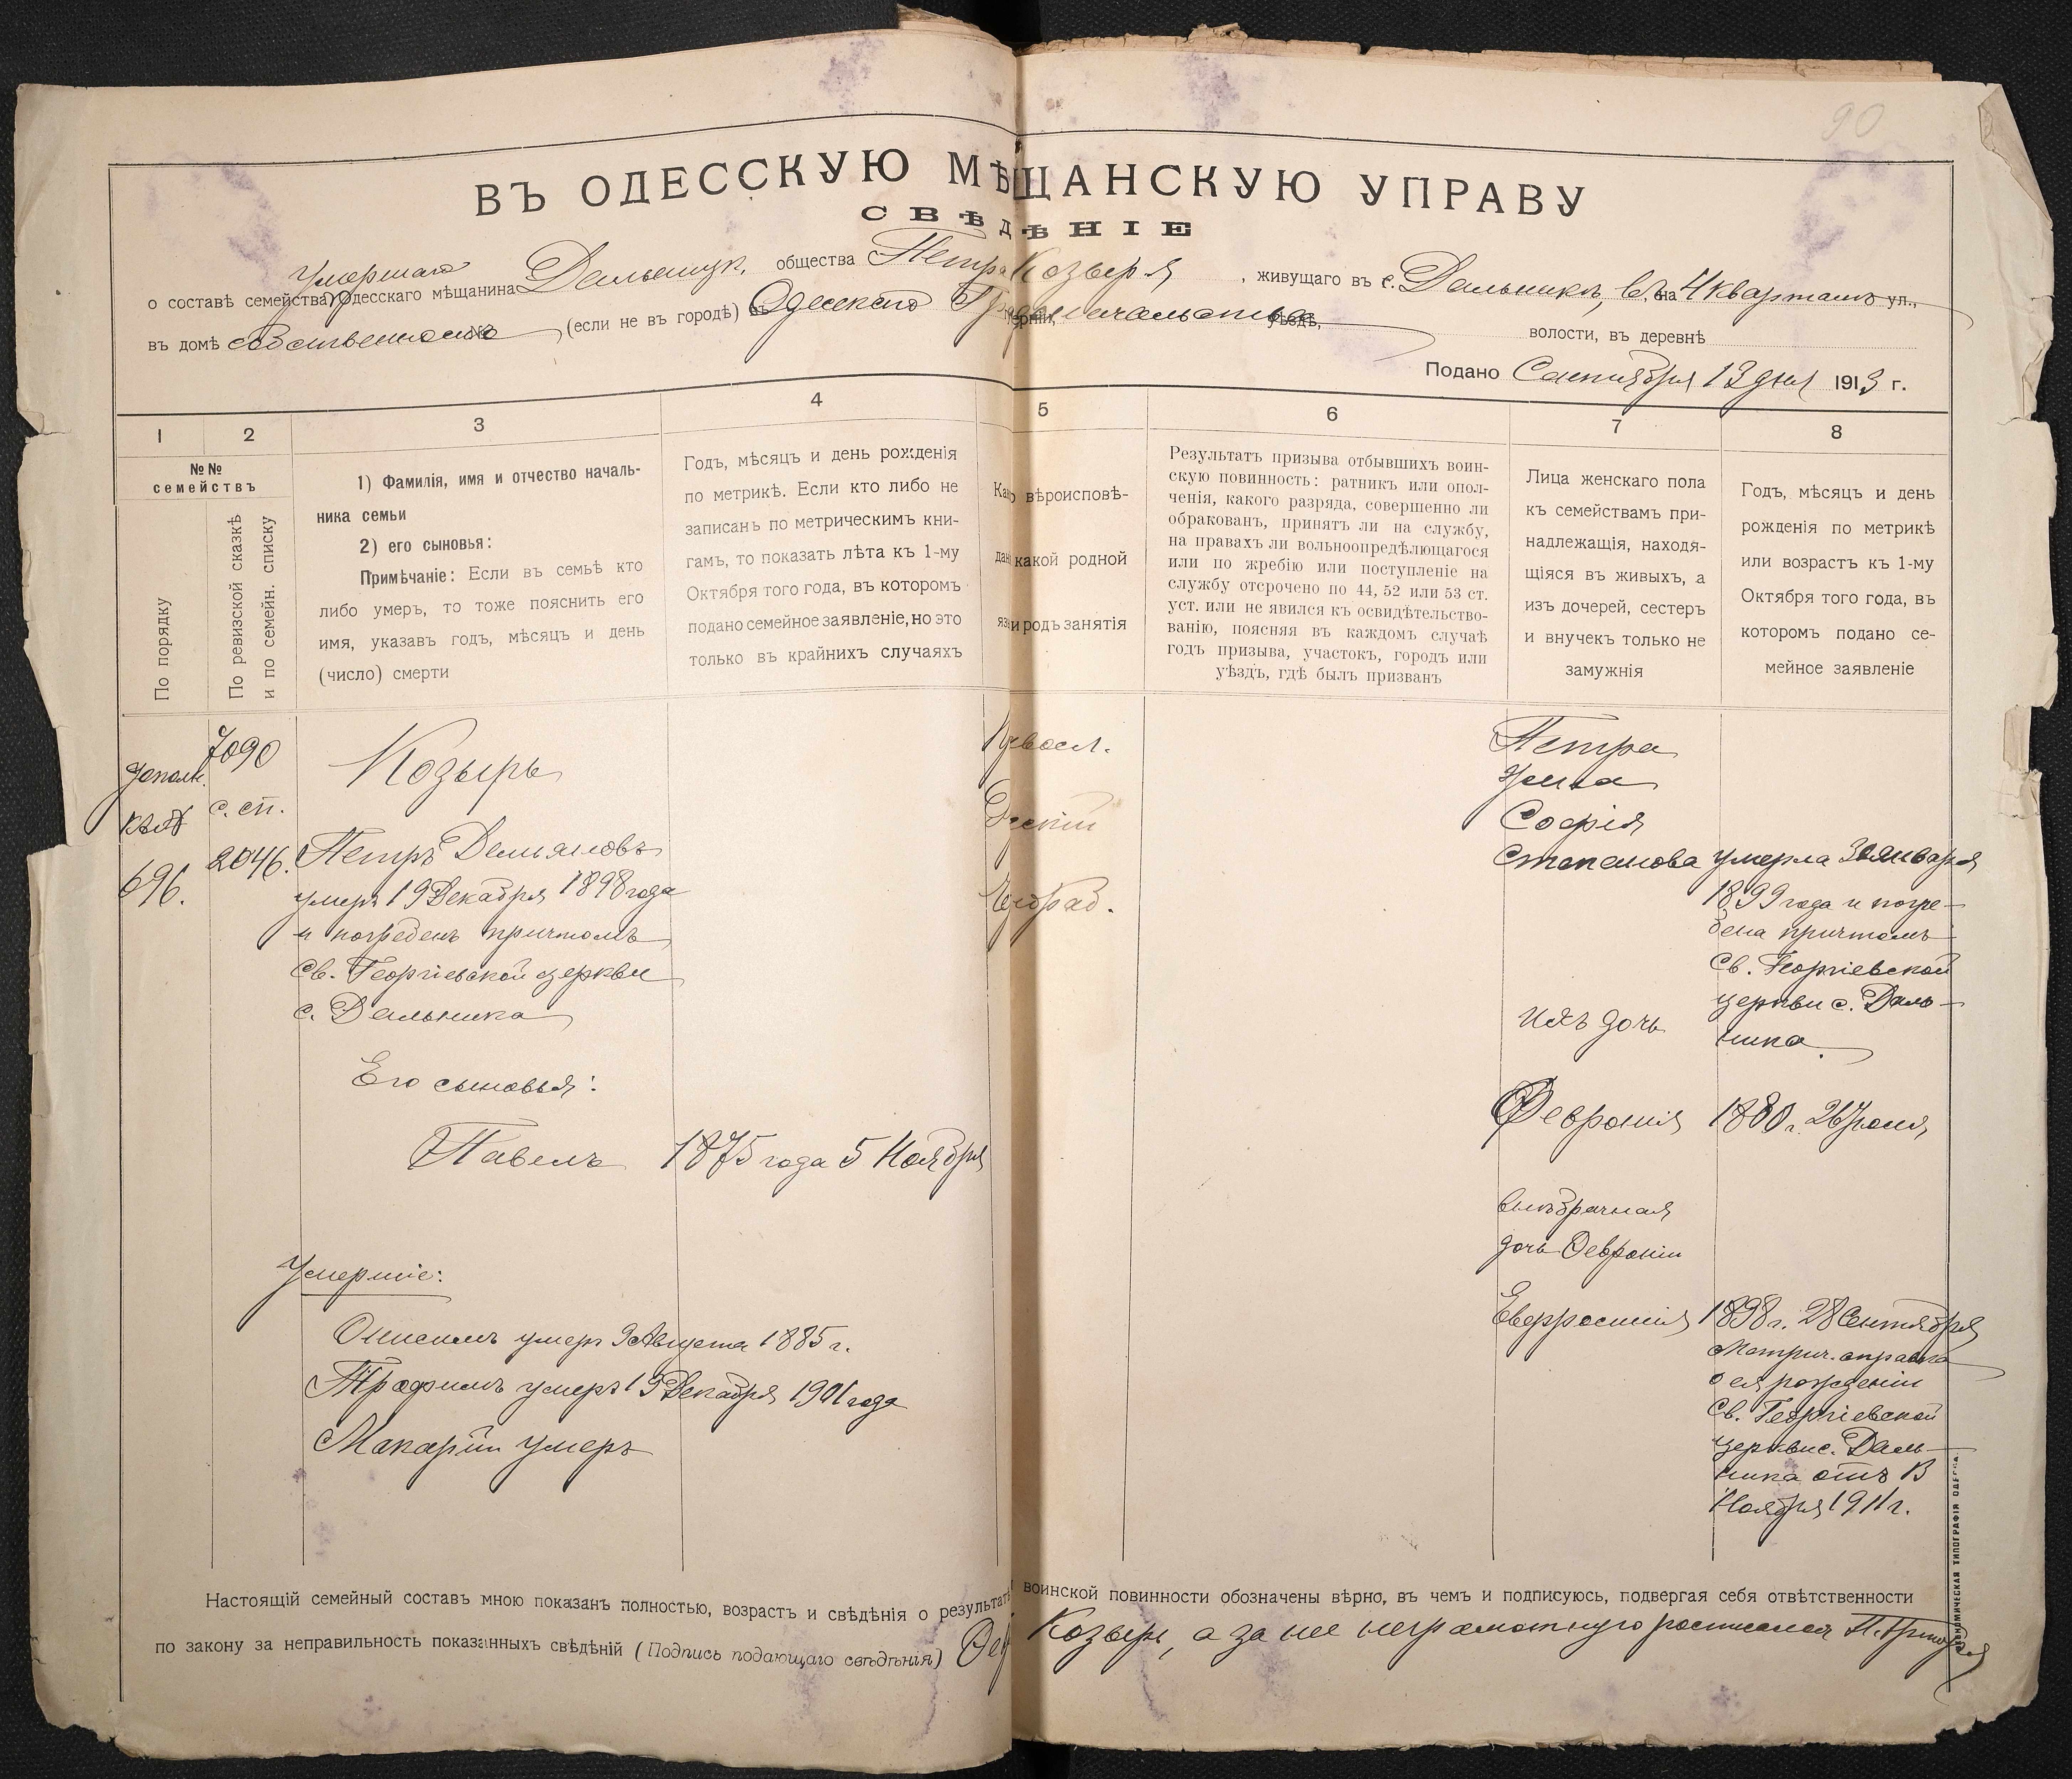 90
ВЪ ОДЕССКУЮ МѢЩАНСКУЮ УПРАВУ
СВѢДѢНІЕ
умершаго
о составѣ семейства Одесскаго мѣщанина Дальницк. общества Петра Козыря, живущаго въ с. Дальникѣ, въ 4 кварталѣ ул.,
въ домѣ собственномъ № (если не въ городѣ) въ Одесскаго Градоначальства уѣздѣ, волости, въ деревнѣ
Подано Сентября 13 дня 1913 г.
1
2
3
4
5
6
7
8
№№
семействъ
По порядку
По ревизской сказкѣ
и по семейн. списку
1) Фамилія, имя и отчество началь-
ника семьи
2) его сыновья:
Примѣчаніе: Если въ семьѣ кто
либо умеръ, то тоже пояснить его
имя, указавъ годъ, мѣсяцъ и день
(число) смерти
Годъ, мѣсяцъ и день рожденія
по метрикѣ. Если кто либо не
записанъ по метрическимъ кни-
гамъ, то показать лѣта къ 1-му
Октября того года, въ которомъ
подано семейное заявленіе, но это
только въ крайнихъ случаяхъ
вѣроисповѣ-
какой родной
и родъ занятія
Результатъ призыва отбывшихъ воин-
скую повинность: ратникъ или опол-
ченія, какого разряда, совершенно ли
обракованъ, принятъ ли на службу,
на правахъ ли вольноопредѣляющагося
или по жребію или поступленіе на
службу отсрочено по 44, 52 или 53 ст.
уст. или не явился къ освидѣтельство-
ванію, поясняя въ каждомъ случаѣ
годъ призыва, участокъ, городъ или
уѣздъ, гдѣ былъ призванъ
Лица женскаго пола
къ семействамъ при-
надлежащія, находя-
щіяся въ живыхъ, а
изъ дочерей, сестеръ
и внучекъ только не
замужнія
Годъ, мѣсяцъ и день
рожденія по метрикѣ
или возрастъ къ 1-му
Октября того года, въ
которомъ подано се-
мейное заявленіе
696.
7090
с. сп.
2046.
Козырь
Петръ Демьяновъ
умеръ 19 Декабря 1898 года
и погребенъ причтомъ
Св. Георгіевской церкви
с. Дальника
Его сыновья:
Павелъ 1875 года 5 Ноября
Умершіе:
Онисимъ умеръ 9 Августа 1885 г.
Трофимъ умеръ 19 Декабря 1901 года
Макарій умеръ
Петра
жена
Софія
Степанова умерла 30 января
1899 года и погре-
бена причтомъ
Св. Георгіевской
церкви с. Даль-
ника
ихъ дочь
Февронія 1880 г. 26 Іюня
внѣбрачная
дочь Февроніи
Евфросинія 1898 г. 28 Сентября
Метрич. справка
о ея рожденіи
Св. Георгіевской
церкви с. Даль-
ника отъ 13
Ноября 1911 г.
Настоящій семейный составъ мною показанъ полностью, возрастъ и свѣдѣнія о результатѣ воинской повинности обозначены вѣрно, въ чемъ и подписуюсь, подвергая себя отвѣтственности
по закону за неправильность показанныхъ свѣдѣній (Подпись подающаго свѣдѣнія) Козырь, а за нее неграмотную росписался